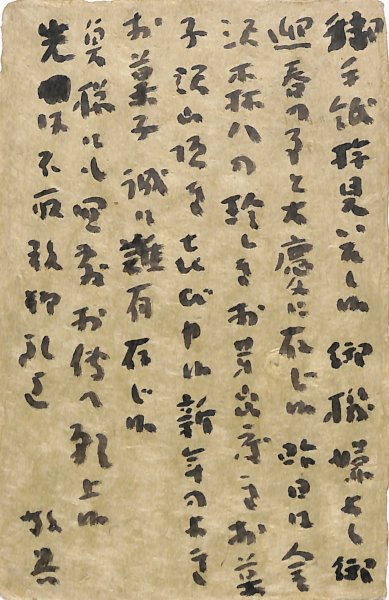 御手紙拝見いたし候 御機嫌よく御
迎春の事と大慶に存じ候 昨日は金
沢 八の珍しきお芽出度きお菓
子沢山頂き よろこび申候 新年のよき
お菓子 誠に難有存じ候
奥様にも宜敷お伝へ願上候
先は不取敢御礼迄 敬具